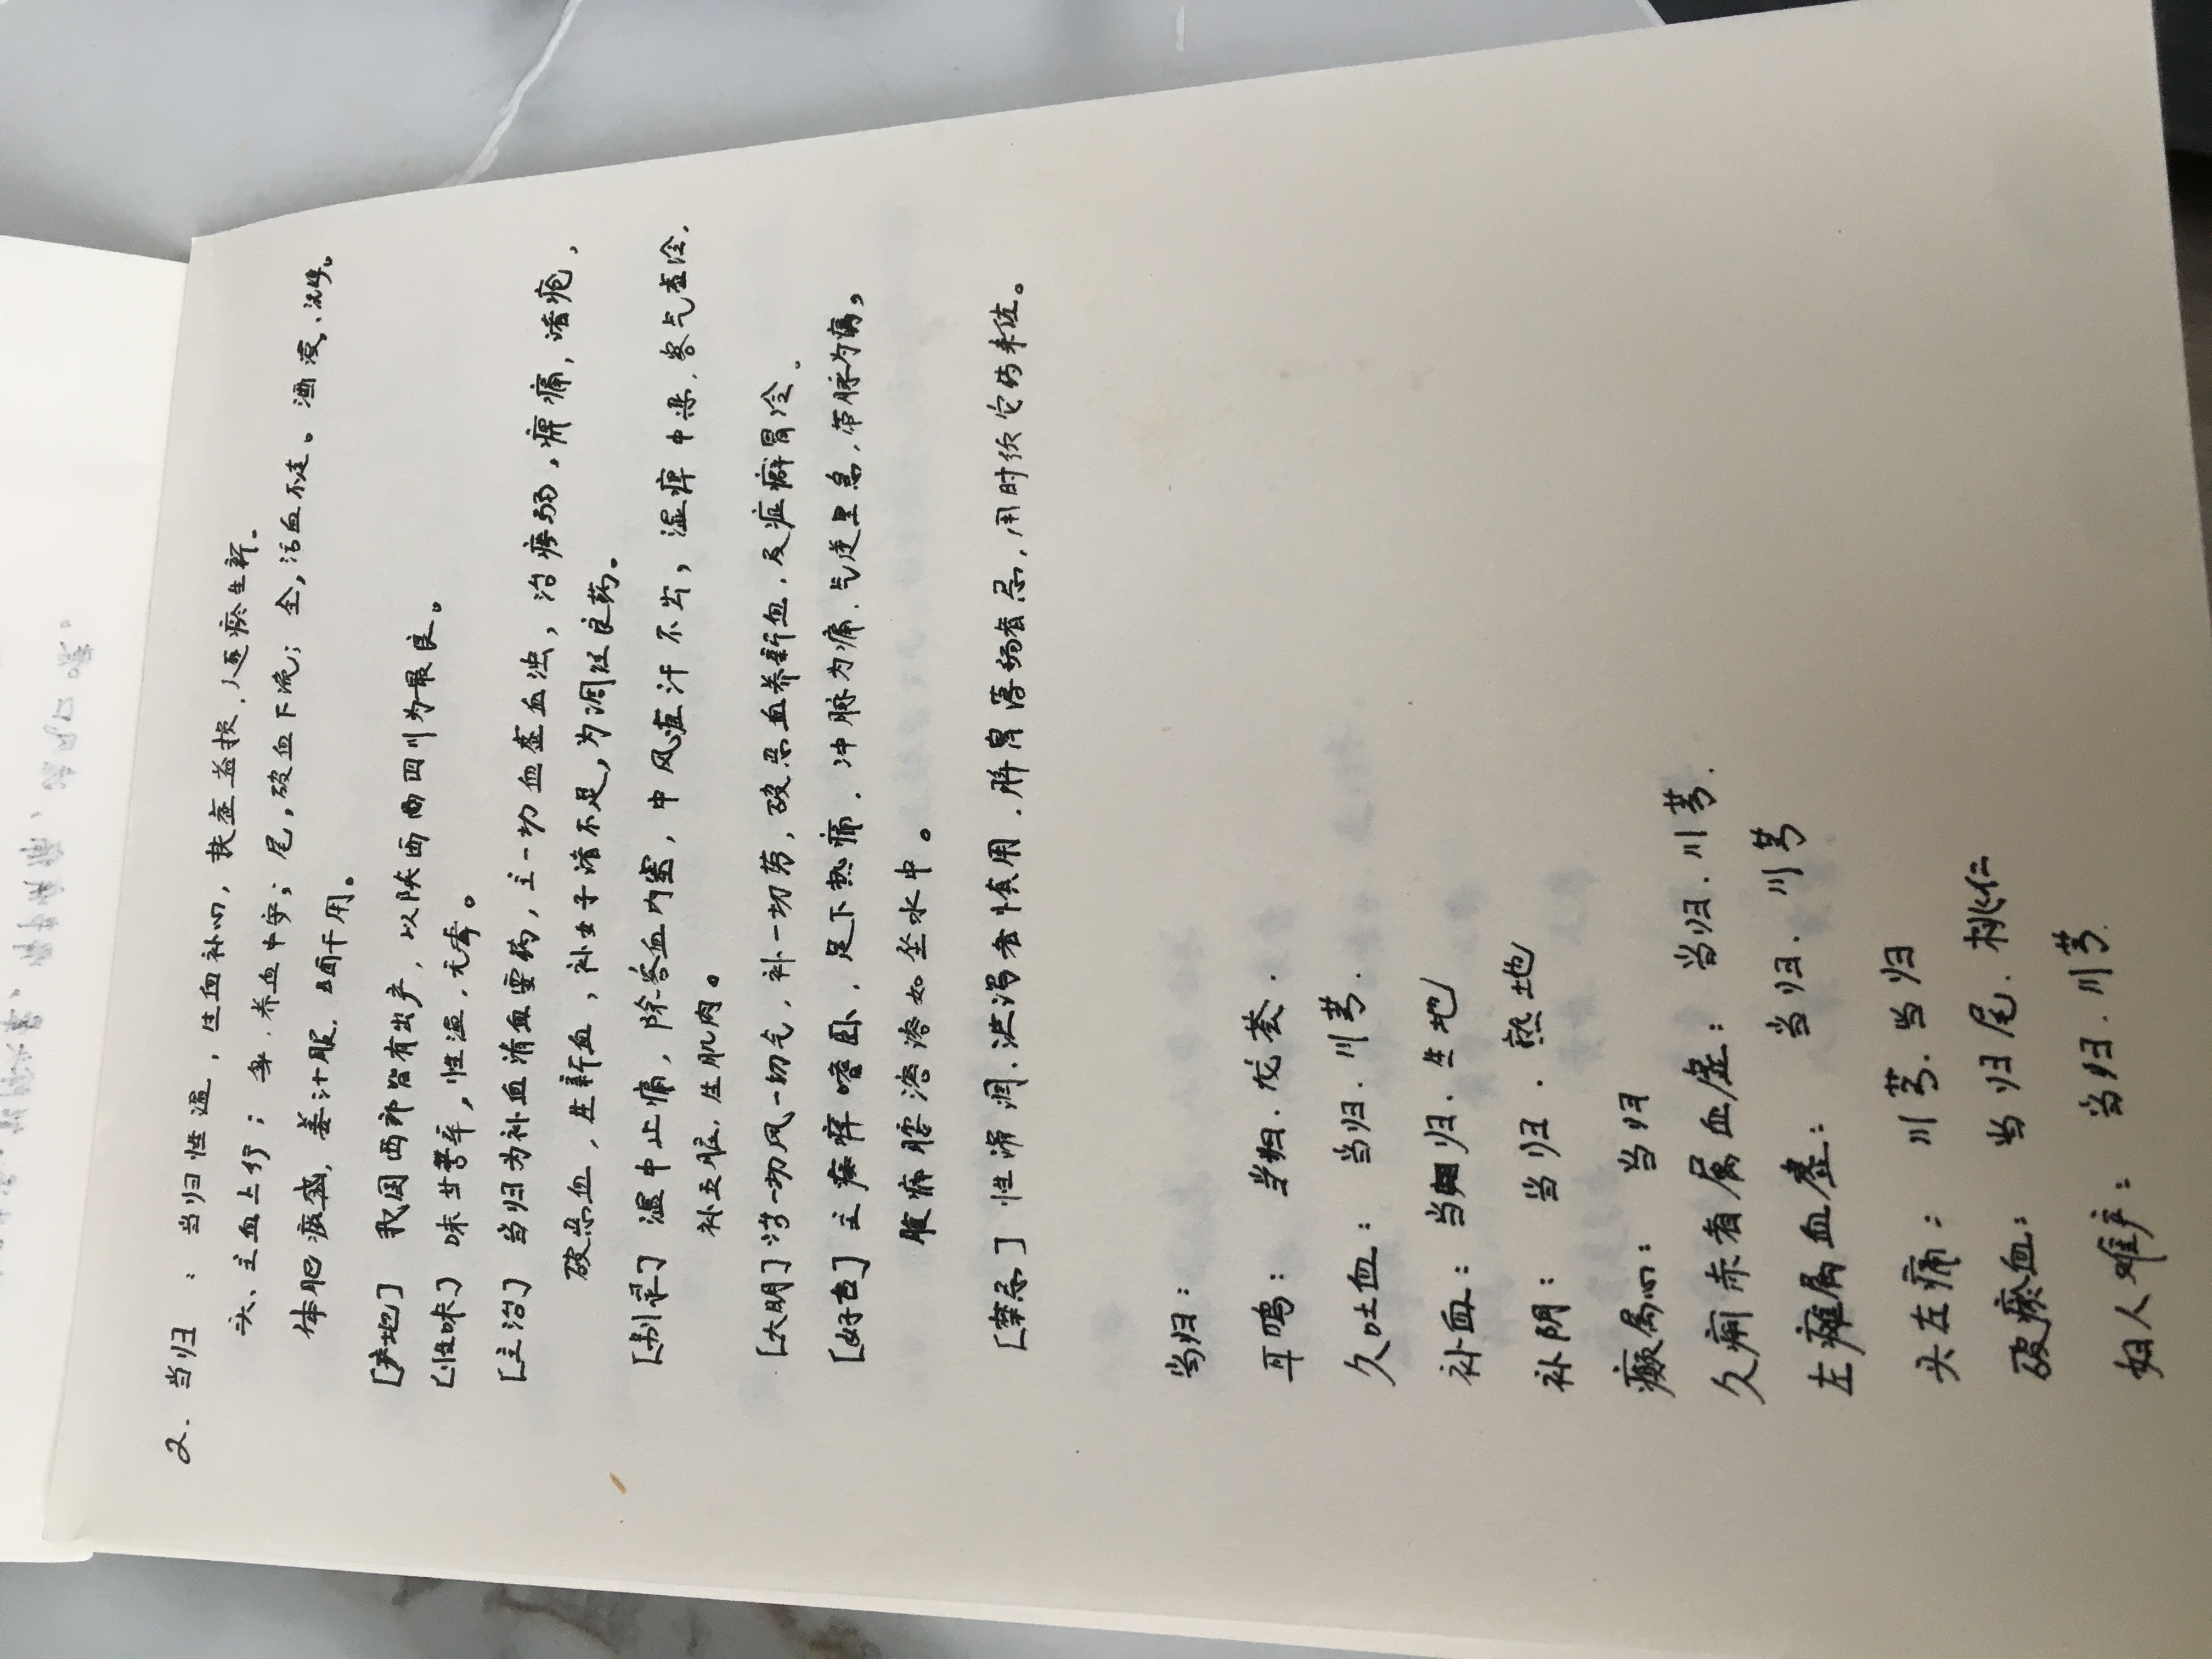 2. 当归 : 当归性温，生血补心，扶虚益损，逐瘀生新。
头，主血上行；身，养血中守；尾，破血下流；全，活血不走。酒浸、洗
体肥痰盛，姜汁服，晒干用。
[产地] 我国西部皆有出产，以陕西四川为最良。
[性味] 味甘苦辛，性温，无毒。
[主治] 当归为补血清血要药，主一切血虚血浊，治痨弱，痹痛，诸疮，
破恶血，生新血，补女子诸不足，为调经良药。
[别录] 温中止痛，除客血内塞，中风痉汗不出，湿痹中恶，客气虚冷，
补五脏，生肌肉。
[大明] 治一切风一切气，补一切劳，破恶血养新血，及症癖胃冷。
[好古] 主痿痹嗜卧，足下热痛，冲脉为病，气逆里急，带脉为病，
腹痛腰溶溶如坐水中。
[禁忌] 性滑润，泄泻者慎用，脾胃薄弱者忌，用时须它药来佐。
当归：
耳鸣： 当归．龙荟．
久吐血： 当归．川芎．
补血：当归．生地
补阴： 当归．熟地
癫属心： 当归
久痢赤者属血虚：当归．川芎．
左瘫属血虚： 当归．川芎
头左痛： 川芎．当归
破瘀血： 当归尾．桃仁
妇人难产： 当归．川芎．